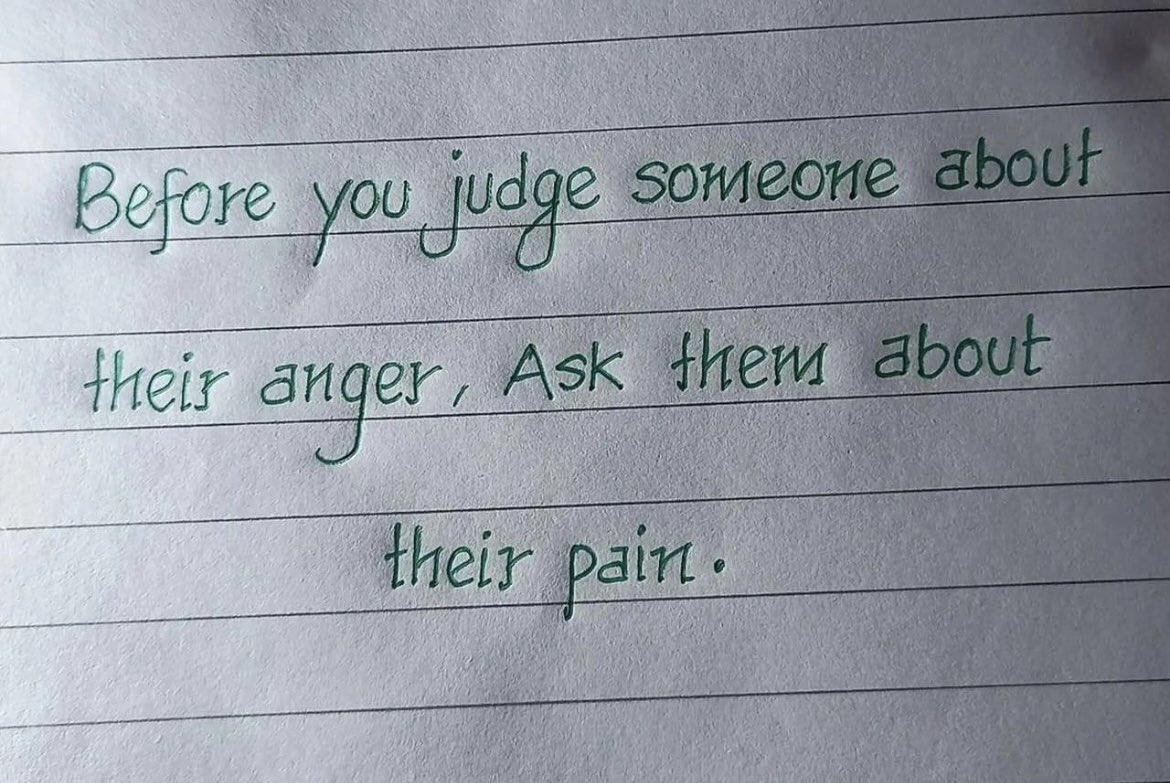 Before you judge someone about
their anger, Ask them about
their pain.